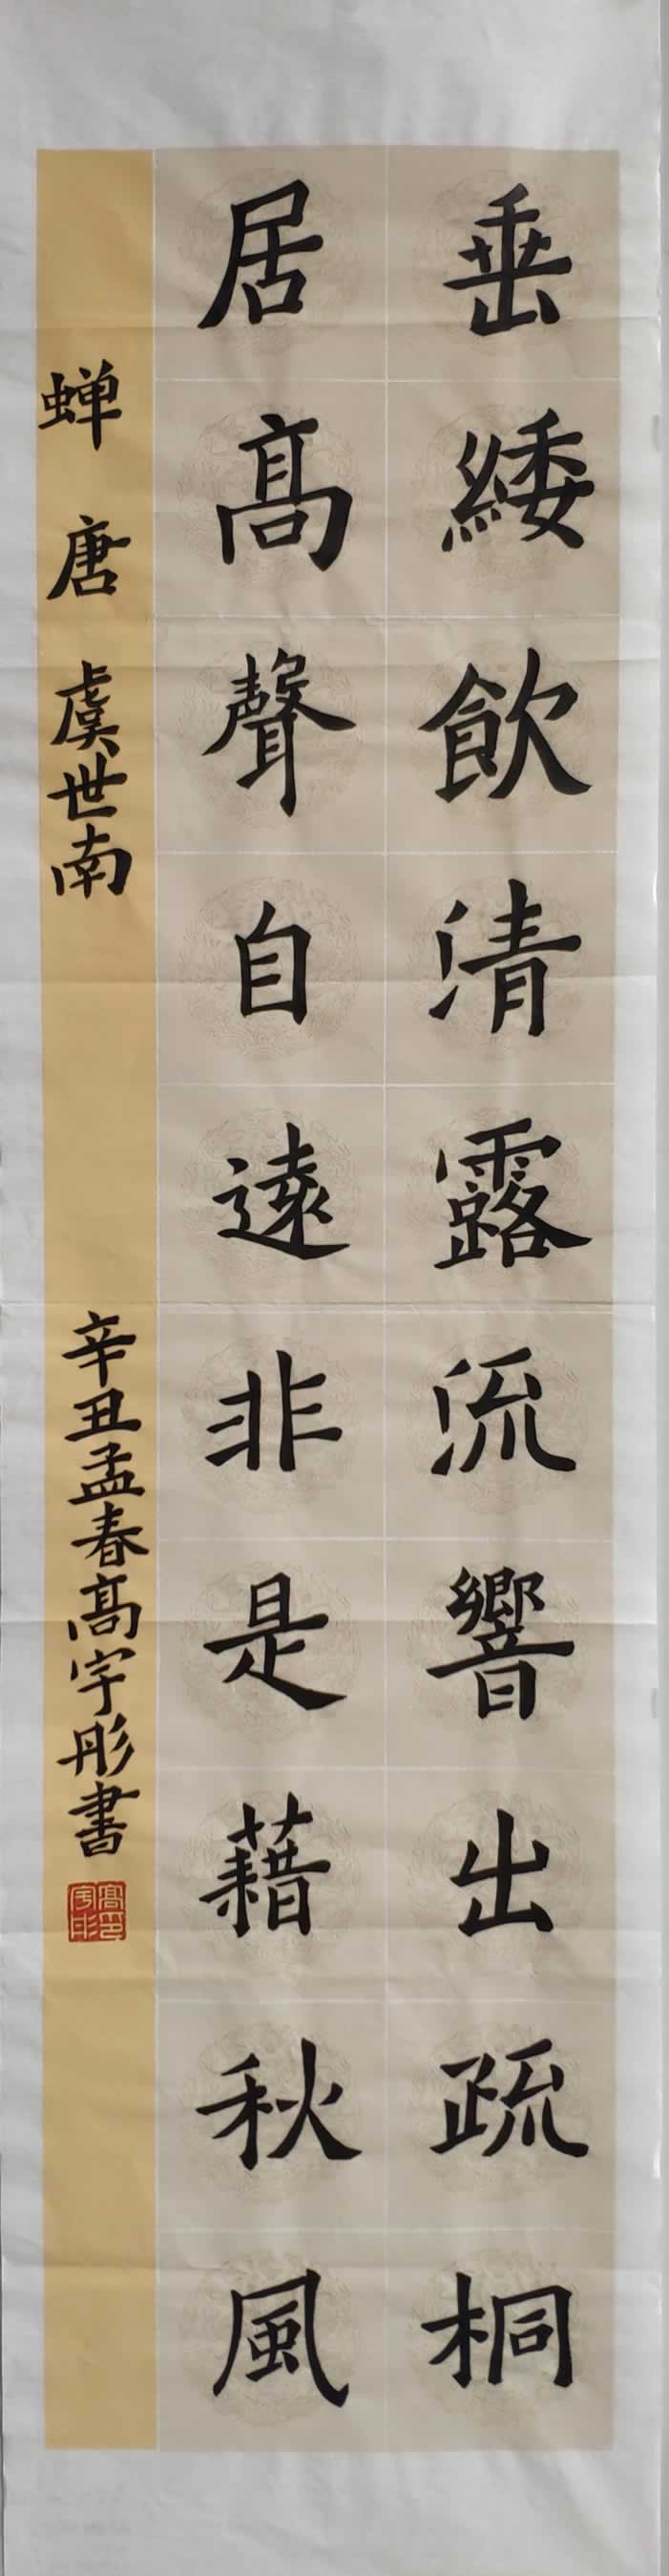 垂緌飲清露流響出疏桐
居高聲自遠非是藉秋風
蝉 唐 虞世南
辛丑孟春高宇彤書
高宇彤印